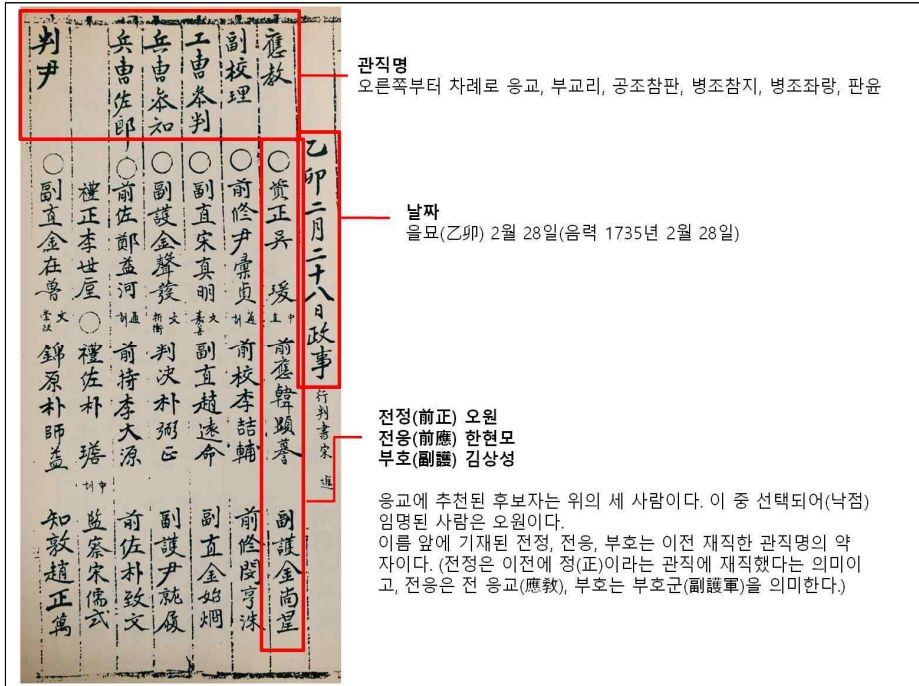 乙卯二月二十八日政事 行判書宋 進
應敎 ○ 資正吳 瑗 中直 前應韓顯謩 副護金尙星
副校理 ○ 前修尹彙貞 通訓 前校李喆輔 前修閔亨洙
工曹叅判 ○ 副直宋真明 文嘉善 副直趙遠命 副直金始炯
兵曹叅知 ○ 副護金聲發 文折衝 判決朴弼正 副護尹就履
兵曹佐郎 ○ 前佐鄭益河 通訓 前持李大源 前佐朴致文
禮正李世 ○ 禮佐朴 中訓 監察宋儒式
判尹 ○ 副直金在魯 文崇政 錦原朴師益 知敦趙正萬
관직명
오른쪽부터 차례로 응교, 부교리, 공조참판, 병조참지, 병조좌랑, 판윤
날짜
을묘(乙卯) 2월 28일(음력 1735년 2월 28일)
전정(前正) 오원
전응(前應) 한현모
부호(副護) 김상성
응교에 추천된 후보자는 위의 세 사람이다. 이 중 선택되어(낙점)
임명된 사람은 오원이다.
이름 앞에 기재된 전정, 전응, 부호는 이전 재직한 관직명의 약
자이다. (전정은 이전에 정(正)이라는 관직에 재직했다는 의미이
고, 전응은 전 응교(應敎), 부호는 부호군(副護軍)을 의미한다.)